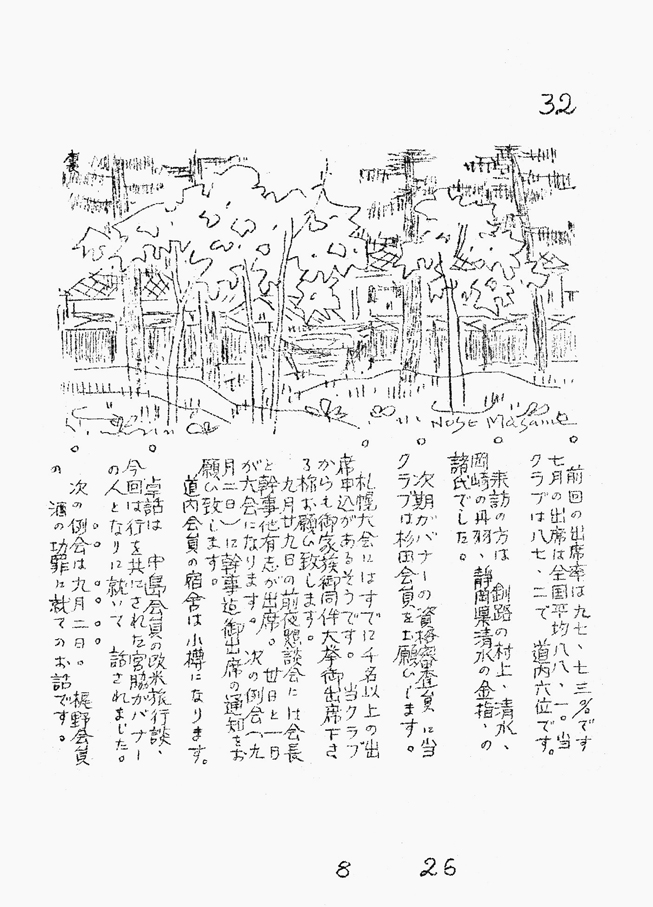 32
NOBE Masame
○前回の出席率は九七、七三%です
七月の出席は全国平均八八、一。当
クラブは八七、二で 道内六位です。
○来訪の方は 釧路の村上、清水、
岡崎の丹羽、静岡県清水の金指、の
諸氏でした。
○次期ガバナーの資格審査員に当
クラブは杉田会員をお願いします。
○札幌大会にはすでに千名以上の出
席申込があるそうです。当クラブ
からも御家族御同伴大挙御出席下さ
る様お願い致します。
九月廿九日の前夜懇談会には会長
と幹事他有志が出席。廿日と一日
が大会になります。次の例会(九
月二日)に幹事迄御出席の通知をお
願い致します。
道内会員の宿舎は小樽になります。
○卓話は 中島会員の欧米旅行談、
今回は行を共にされた宮脇ガバナー
の人となりに就いて 話されました。
○○○○○○
次の例会は九月二日。梶野会員
の 酒の功罪に就てのお話です。
8 26